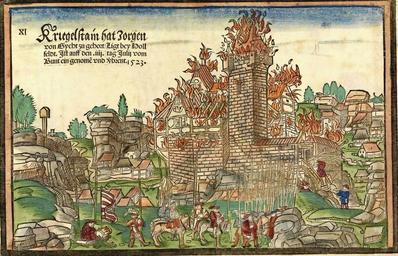 XI
Kriegelstain hat Jorgen
von Gycht zu gehort Ligt bey Holl
feldt. Ist auff den .iiij. tag Julij vom
Bunt ein genomē vnd Vbrent. 1523.